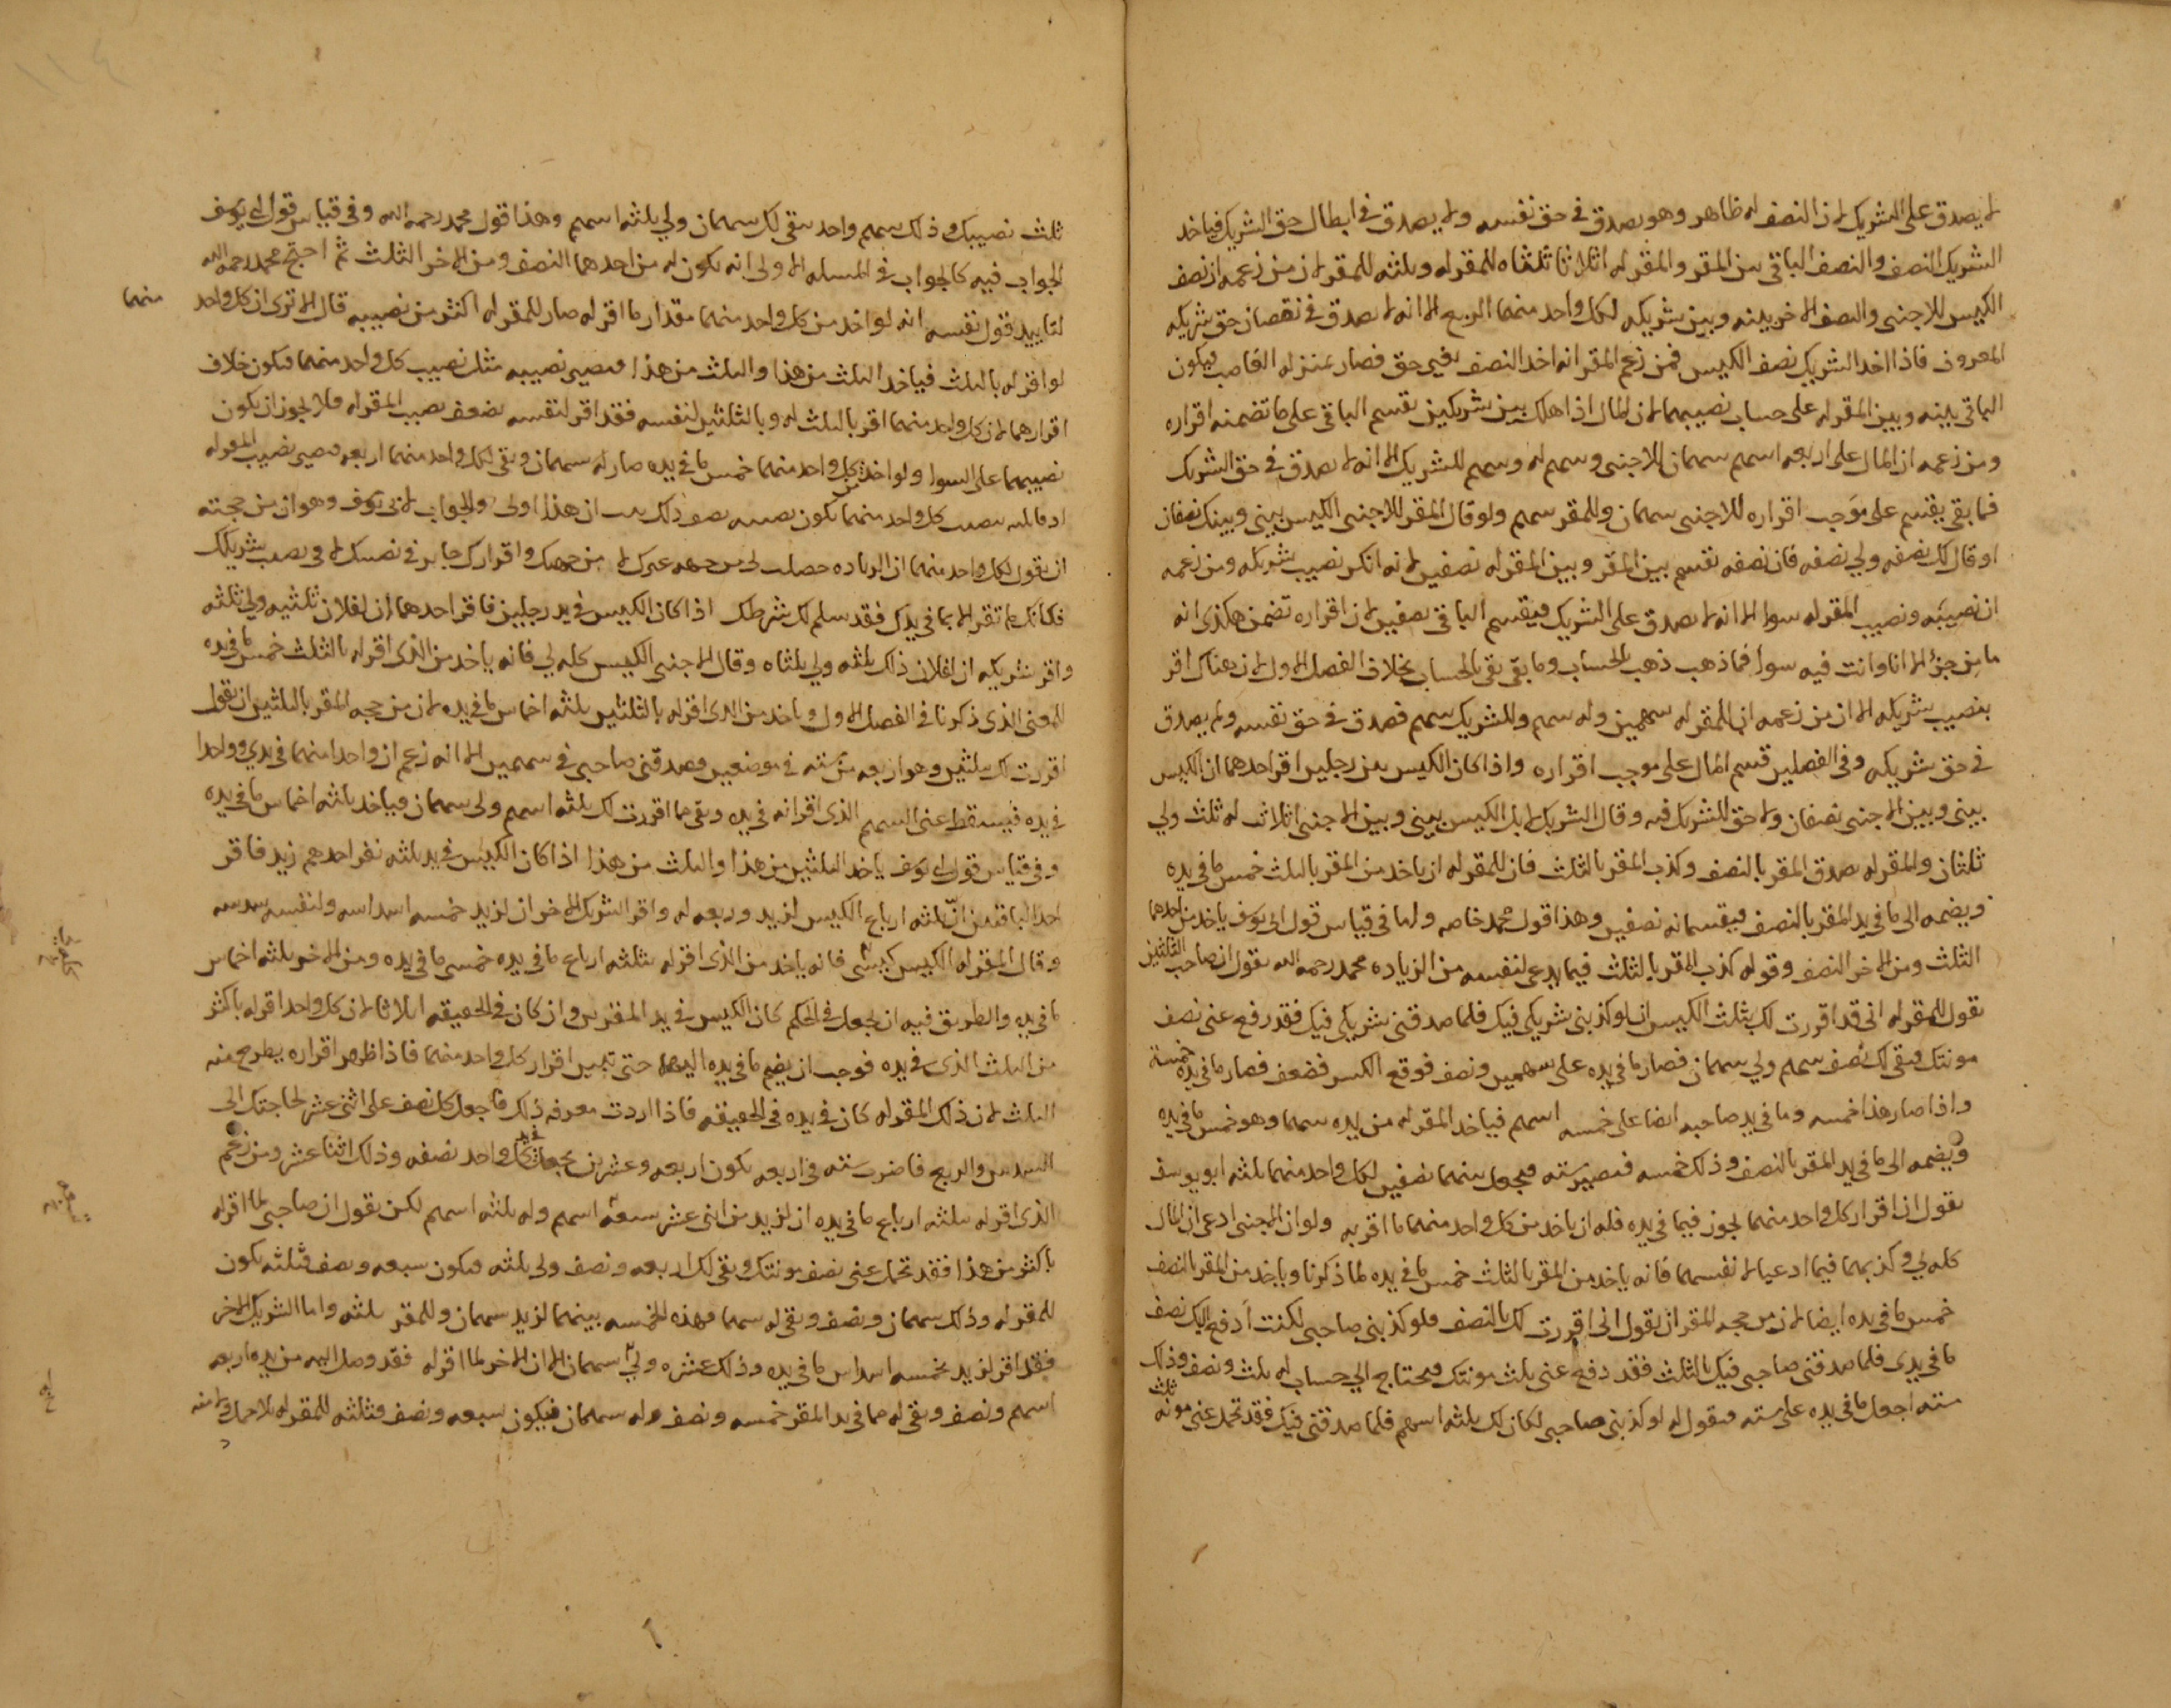 لا يصدق على الشريك لان النصف له ظاهر وهو يصدق في حق نفسه ولا يصدق في ابطال حق الشريك فياخد
الشريك النصف والنصف الباقي بين المقر والمقر له اثلاثا ثلثاه للمقر له وثلثه للمقر لان من زعمه ان نصف
الكيس للاجنبى والنصف الاخر بينه وبين شريكه لكل واحد منهما الربع الا انه لا يصدق في نقصان حق شريكه
المعروف فاذا اخذ الشريك نصف الكيس فمن زعم المقر انه اخذ النصف بغير حق فصار بمنزله الغاصب فيكون
الباقي بينه وبين المقر له على حساب نصيبهما لان المال اذا هلك بين شريكين يقسم الباقي على ما تضمنه اقراره
ومن زعمه ان المال على اربعه اسهم سهمان للاجنبى وسهم له وسهم للشريك الا انه لا يصدق في حق الشريك
فما بقى يقسم على موجب اقراره للاجنبى سهمان وللمقر سهم ولو قال المقر للاجنبى الكيس بينى وبينك نصفان
او قال لك نصفه ولي نصفه فان نصفه يقسم بين المقر وبين المقر له نصفين لانه انكر نصيب شريكه ومن زعمه
ان نصيبه ونصيب المقر له سواء الا انه لا يصدق على الشريك فيقسم الباقي نصفين لان اقراره تضمن هكذى انه
ما من جزء الا انا وانت فيه سواء فما ذهب ذهب بالحساب وما بقى بقى بالحساب بخلاف الفصل الاول لان هناك اقر
بنصيب شريكه الا ان من زعمه ان للمقر له سهمين وله سهم وللشريك سهم فصدق في حق نفسه ولم يصدق
في حق شريكه وفى الفصلين قسم المال على موجب اقراره واذا كان الكيس بين رجلين اقر احدهما ان الكيس
بينى وبين الاجنبى نصفان ولا حق للشريك فيه وقال الشريك لا بل الكيس بينى وبين الاجنبى اثلاث له ثلث ولي
ثلثان والمقر له يصدق المقر بالنصف وكذب المقر بالثلث فان للمقر له ان ياخد من المقر بالثلث خمس ما في يده
ويضمه الى ما في يد المقر بالنصف فيقسمانه نصفين وهذا قول محمد خاصه واما في قياس قول ابى يوسف ياخد من احدهما
الثلث ومن الاخر النصف وقوله كذب المقر بالثلث فيما يدعى لنفسه من الزياده محمد رحمه الله يقول ان صاحب الثلثين
يقول للمقر له انى قد اقررت لك بثلث الكيس ان لو كذبنى شريكى فيك فلما صدقنى شريكى فيك فقد رفع عنى نصف
مونتك فبقى لك نصف سهم ولي سهمان فصار ما في يده على سهمين ونصف فوقع الكسر فضعف فصار ما في يده خمسة
واذا صار هذا خمسه وما في يد صاحبه ايضا على خمسه اسهم فياخد المقر له من يده سهما وهو خمس ما في يده
ويضمه الى ما في يد المقر بالنصف وذلك خمسه فيصير سته فيجعل بينهما نصفين لكل واحد منهما ثلثه ابو يوسف
يقول ان اقرار كل واحد منهما يجوز فيما في يده فله ان ياخد من كل واحد منهما ما اقر به ولو ان الاجنبى ادعى ان المال
كله لي وكذبهما فيما ادعيا لانفسهما فانه ياخد من المقر بالثلث خمس ما في يده لما ذكرنا وياخد من المقر بالنصف
خمس ما في يده ايضا لان من حجه المقر ان يقول انى اقررت لك بالنصف فلو كذبنى صاحبى لكنت ادفع اليك نصف
ما في يدى فلما صدقنى صاحبى فيك بالثلث فقد دفع عنى ثلث مونتك فيحتاج الى حساب له ثلث ونصف وذلك
سته اجعل ما في يده على سته فيقول له لو كذبنى صاحبى لكان لك ثلثه اسهم فلما صدقنى فيك فقد تحمل عنى ثلث مونه
ثلث نصيبك وذلك سهم واحد بقى لك سهمان ولي ثلثه اسهم وهذا قول محمد رحمه الله وفى قياس قول ابى يوسف
الجواب فيه كالجواب في المسله الاولى انه يكون له من احدهما النصف ومن الاخر الثلث ثم احتج محمد رحمه الله
لتاييد قول نفسه انه لو اخد من كل واحد منهما مقدار ما اقر له صار للمقر له اكثر من نصيبه قال الا ترى ان كل واحد منهما
لو اقر له بالثلث فياخد الثلث من هذا والثلث من هذا فيصير نصيبه مثل نصيب كل واحد منهما فيكون خلاف
اقرارهما لان كل واحد منهما اقر بالثلث له وبالثلثين لنفسه فقد اقر لنفسه بضعف نصيب المقر له فلا يجوز ان يكون
نصيبهما على السوا ولو اخذ من كل واحد منهما خمس ما في يده صار له سهمان وبقى لكل واحد منهما اربعه فيصير نصيب المقر له
نصيب كل واحد منهما يكون نصيبه نصف ذلك ان هذا اولى والجواب لابى يوسف وهو ان من حجته
ان يقول لكل واحد منهما ان الزياده حصلت لى من جهه غيرك لا من جهتك واقرارك جايز في نصيبك لا في نصيب شريكك
فكانك لم تقر الا بما في يدك فقد سلم لك شرطك اذا كان الكيس في يد رجلين فاقر احدهما ان لفلان ثلثيه ولي ثلثه
واقر شريكه ان لفلان ذلك ثلثه ولي ثلثاه وقال الاجنبى الكيس كله لي فانه ياخد من الذى اقر له بالثلث خمس ما في يده
للمعنى الذى ذكرنا في الفصل الاول وياخد من الذى اقر له بالثلثين ثلثه اخماس ما في يده لان من حجه المقر بالثلثين ان يقول
اقررت لك بثلثين وهو اربعه من سته في موضعين وصدقنى صاحبى في سهمين الا انه زعم ان واحدا منهما في يدي وواحدا
في يده فيسقط عنى السهم الذى اقر انه في يده وبقى مما اقررت لك ثلثه اسهم ولى سهمان فياخد ثلثه اخماس ما في يده
وفى قياس قول ابى يوسف ياخد الثلثين من هذا والثلث من هذا اذا كان الكيس في يد ثلثه نفر احدهم زيد فاقر
احد الباقيين ان ثلثه ارباع الكيس لزيد وربعه له واقر الشريك الاخر ان لزيد خمسه اسداسه ولنفسه سدسه
وقال المقر له الكيس كيسى فانه ياخد من الذى اقر له بثلثه ارباع ما في يده خمسى ما في يده ومن الاخر ثلثه اخماس
ما في يده والطريق فيه ان يجعل في الحكم كان الكيس في يد المقرين وان كان في الحقيقه اثلاثا لان كل واحد اقر له باكثر
من الثلث الذى في يده فوجب ان يضم ما في يده اليهما حتى تبين اقرار كل واحد منهما فاذا ظهر اقراره يطرح منه
الثلث لان ذلك المقر له كان في يده في الحقيقه فاذا اردت معرفه ذلك فاجعل كل نصف على اثنى عشر لحاجتك الى
السدس والربع فاضرب سته في اربعه يكون اربعه وعشرين يجعل في يد كل واحد نصفه وذلك اثنا عشر ومن زعم
الذى اقر له بثلثه ارباع ما في يده ان لزيد من اثنى عشر تسعه اسهم وله ثلثه اسهم لكن يقول ان صاحبى لما اقر له
باكثر من هذا فقد تحمل عنى نصف مونتك وبقى لك اربعه ونصف ولى ثلثه فيكون سبعه ونصف فثلثه يكون
للمقر له وذلك سهمان ونصف وبقى له سهما فهذه الخمسه بينهما لزيد سهمان وللمقر ثلثه واما الشريك الاخر
فقد اقر لزيد بخمسه اسداس ما في يده وذلك عشره ولى سهمان الا ان الاخر لما اقر له فقد وصل اليه من يده اربعه
اسهم ونصف وبقى له مما في يد المقر خمسه ونصف وله سهمان فيكون سبعه ونصف فثلثه للمقر له